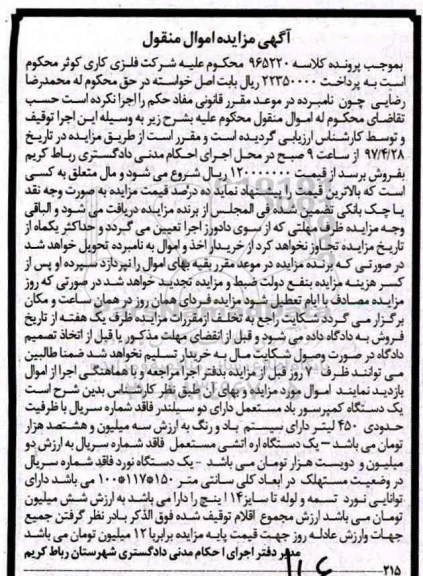 آگهی مزایده اموال منقول
بموجب پرونده کلاسه ۹۶۵۲۲۰ محکوم علیه شرکت فلزی کاری کوثر محکوم
است به پرداخت ۲۲۳۵۰۰۰۰ ریال بابت اصل خواسته در حق محکوم له محمدرضا
رضایی چون نامبرده در موعد مقرر قانونی مفاد حکم را اجرا نکرده است حسب
تقاضای محکوم له اموال منقول محکوم علیه بشرح زیر به وسیله این اجرا توقیف
و توسط کارشناس ارزیابی گردیده است و مقرر است از طریق مزایده در تاریخ
۹۷/۴/۲۸ از ساعت ۹ صبح در محل اجرای احکام مدنی دادگستری رباط کریم
بفروش برسد از قیمت ۱۲۰۰۰۰۰۰۰ ریال شروع می شود و مال متعلق به کسی
است که بالاترین قیمت را پیشنهاد نماید ده درصد قیمت مزایده به صورت وجه نقد
یا چک بانکی تضمین شده فی المجلس از برنده مزایده دریافت می شود و الباقی
وجه مزایده ظرف مهلتی که از سوی دادورز اجرا تعیین می گردد و حداکثر یکماه از
تاریخ مزایده تجاوز نخواهد کرد از خریدار اخذ و اموال به نامبرده تحویل خواهد شد
در صورتی که برنده مزایده در موعد مقرر بقیه بهای اموال را نپردازد سپرده او پس از
کسر هزینه مزایده بنفع دولت ضبط و مزایده تجدید خواهد شد در صورتی که روز
مزایده مصادف با ایام تعطیل شود مزایده فردای همان روز در همان ساعت و مکان
برگزار می گردد شکایت راجع به تخلف از مقررات مزایده ظرف یک هفته از تاریخ
فروش به دادگاه داده می شود و قبل از انقضای مهلت مذکور یا قبل از اتخاذ تصمیم
دادگاه در صورت وصول شکایت مال به خریدار تسلیم نخواهد شد ضمنا طالبین
می توانند ظرف ۷ روز قبل از مزایده بدفتر اجرا مراجعه و با هماهنگی اجرا از اموال
بازدید نمایند اموال مورد مزایده و بهای آن طبق نظر کارشناس بدین شرح است
یک دستگاه کمپرسور باد مستعمل دارای دو سیلندر فاقد شماره سریال با ظرفیت
حدودی ۴۵۰ لیتر دارای سیستم باد و رنگ به ارزش سه میلیون و هشتصد هزار
تومان می باشد – یک دستگاه اره آتشی مستعمل فاقد شماره سریال به ارزش دو
میلیون و دویست هزار تومان می باشد - یک دستگاه نورد فاقد شماره سریال
در وضعیت مستهلک در ابعاد کلی سانتی متر ۱۵۰*۱۱۷*۱۰۰ می باشد دارای
توانایی نورد تسمه و لوله تا سایز ۱۴ اینچ را دارا می باشد به ارزش شش میلیون
تومان می باشد ارزش مجموع اقلام توقیف شده فوق الذکر با در نظر گرفتن جمیع
جهات وارزش عادله روز جهت قیمت پایه مزایده برابر با ۱۲ میلیون تومان می باشد
مدیر دفتر اجرای احکام مدنی دادگستری شهرستان رباط کریم
۲۱۵